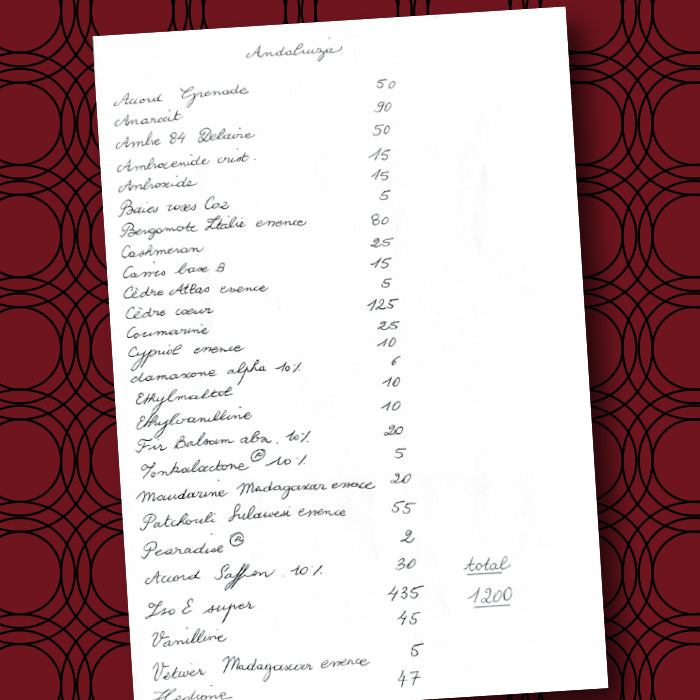 Andaluzja
Accord Grenade 50
Anarocit 90
Ambre 84 Delaire 50
Ambrocenide crist. 15
Ambroxide 15
Baies roses Co2 5
Bergamote Italie essence 80
Cashmeran 25
Cassis base B 15
Cèdre Atlas essence 5
Cèdre cœur 125
Coumarine 25
Cypriol essence 10
damascone alpha 10% 6
Ethylmaltol 10
Ethylvanilline 10
Fir Balsam abs. 10% 20
Tonkalactone ® 10% 5
Mandarine Madagascar essence 20
Patchouli Sulawesi essence 55
Pearadise ® 2
Accord Saffran. 10% 30 total
Iso E super 435 1200
Vanilline 45
Vetiver Madagascar essence 5
Hedione 47